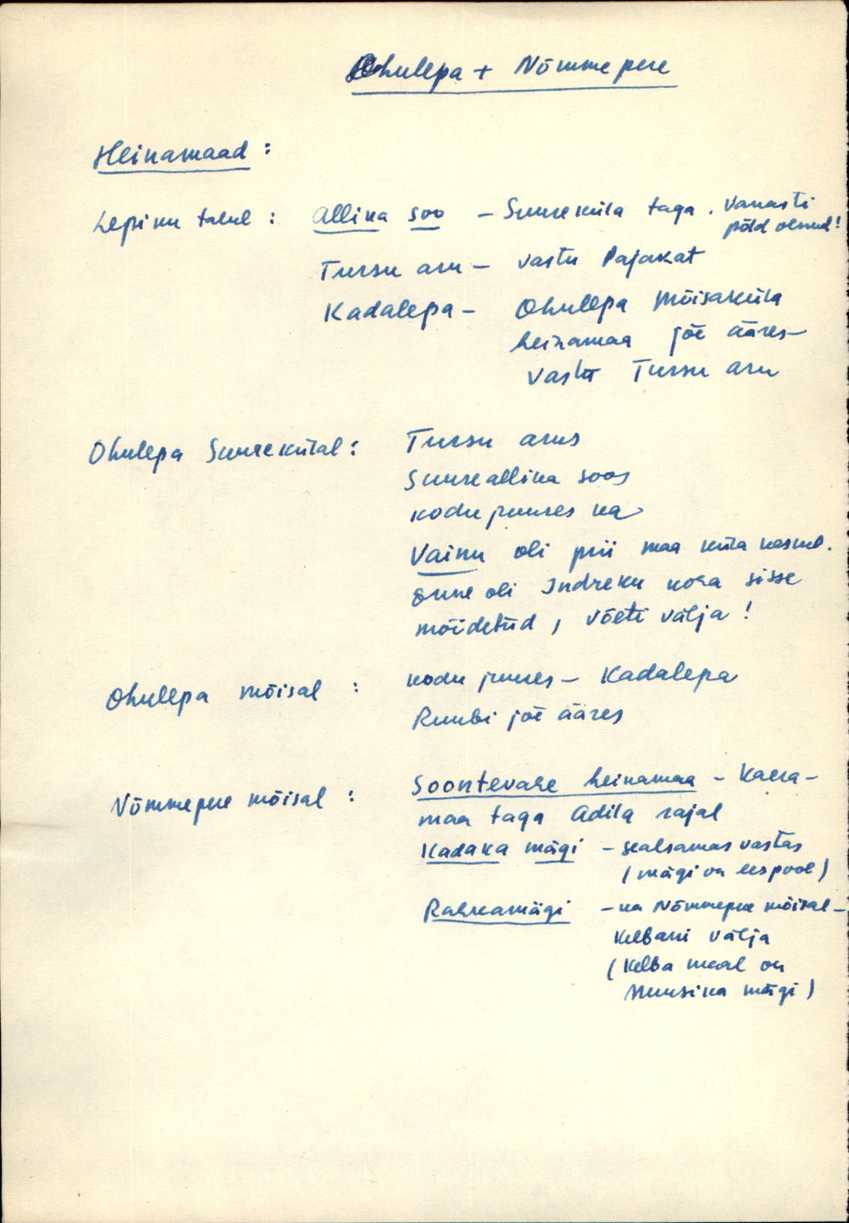 Ohulepa + Nõmmepere
Heinamaad:
Lepiku talul: Allika soo - Suureküla taga. Vanasti
põld olnud!
Tursu aru - vastu Pajakat
Kadalepa - Ohulepa Mõisaküla
heinamaa jõe ääres -
vastu Tursu aru
Ohulepa Suurekülal: Tursu arus
Suureallika soos
kodu juures ka
Vainu oli prii maa küla keskel.
Enne oli Indreku koha sisse
mõidetud, võeti välja!
Ohulepa mõisal: kodu juures - Kadalepa
Ruubi jõe ääres
Nõmmepere mõisal: Soontevahe heinamaa - Kaera-
maa taga Adila rajal
Kadaka mägi - sealsamas vastas
(mägi on eespool)
Rahkamägi - ka Nõmmepere mõisal -
Kelbani välja
(Kelba maal on
Muusika mägi)